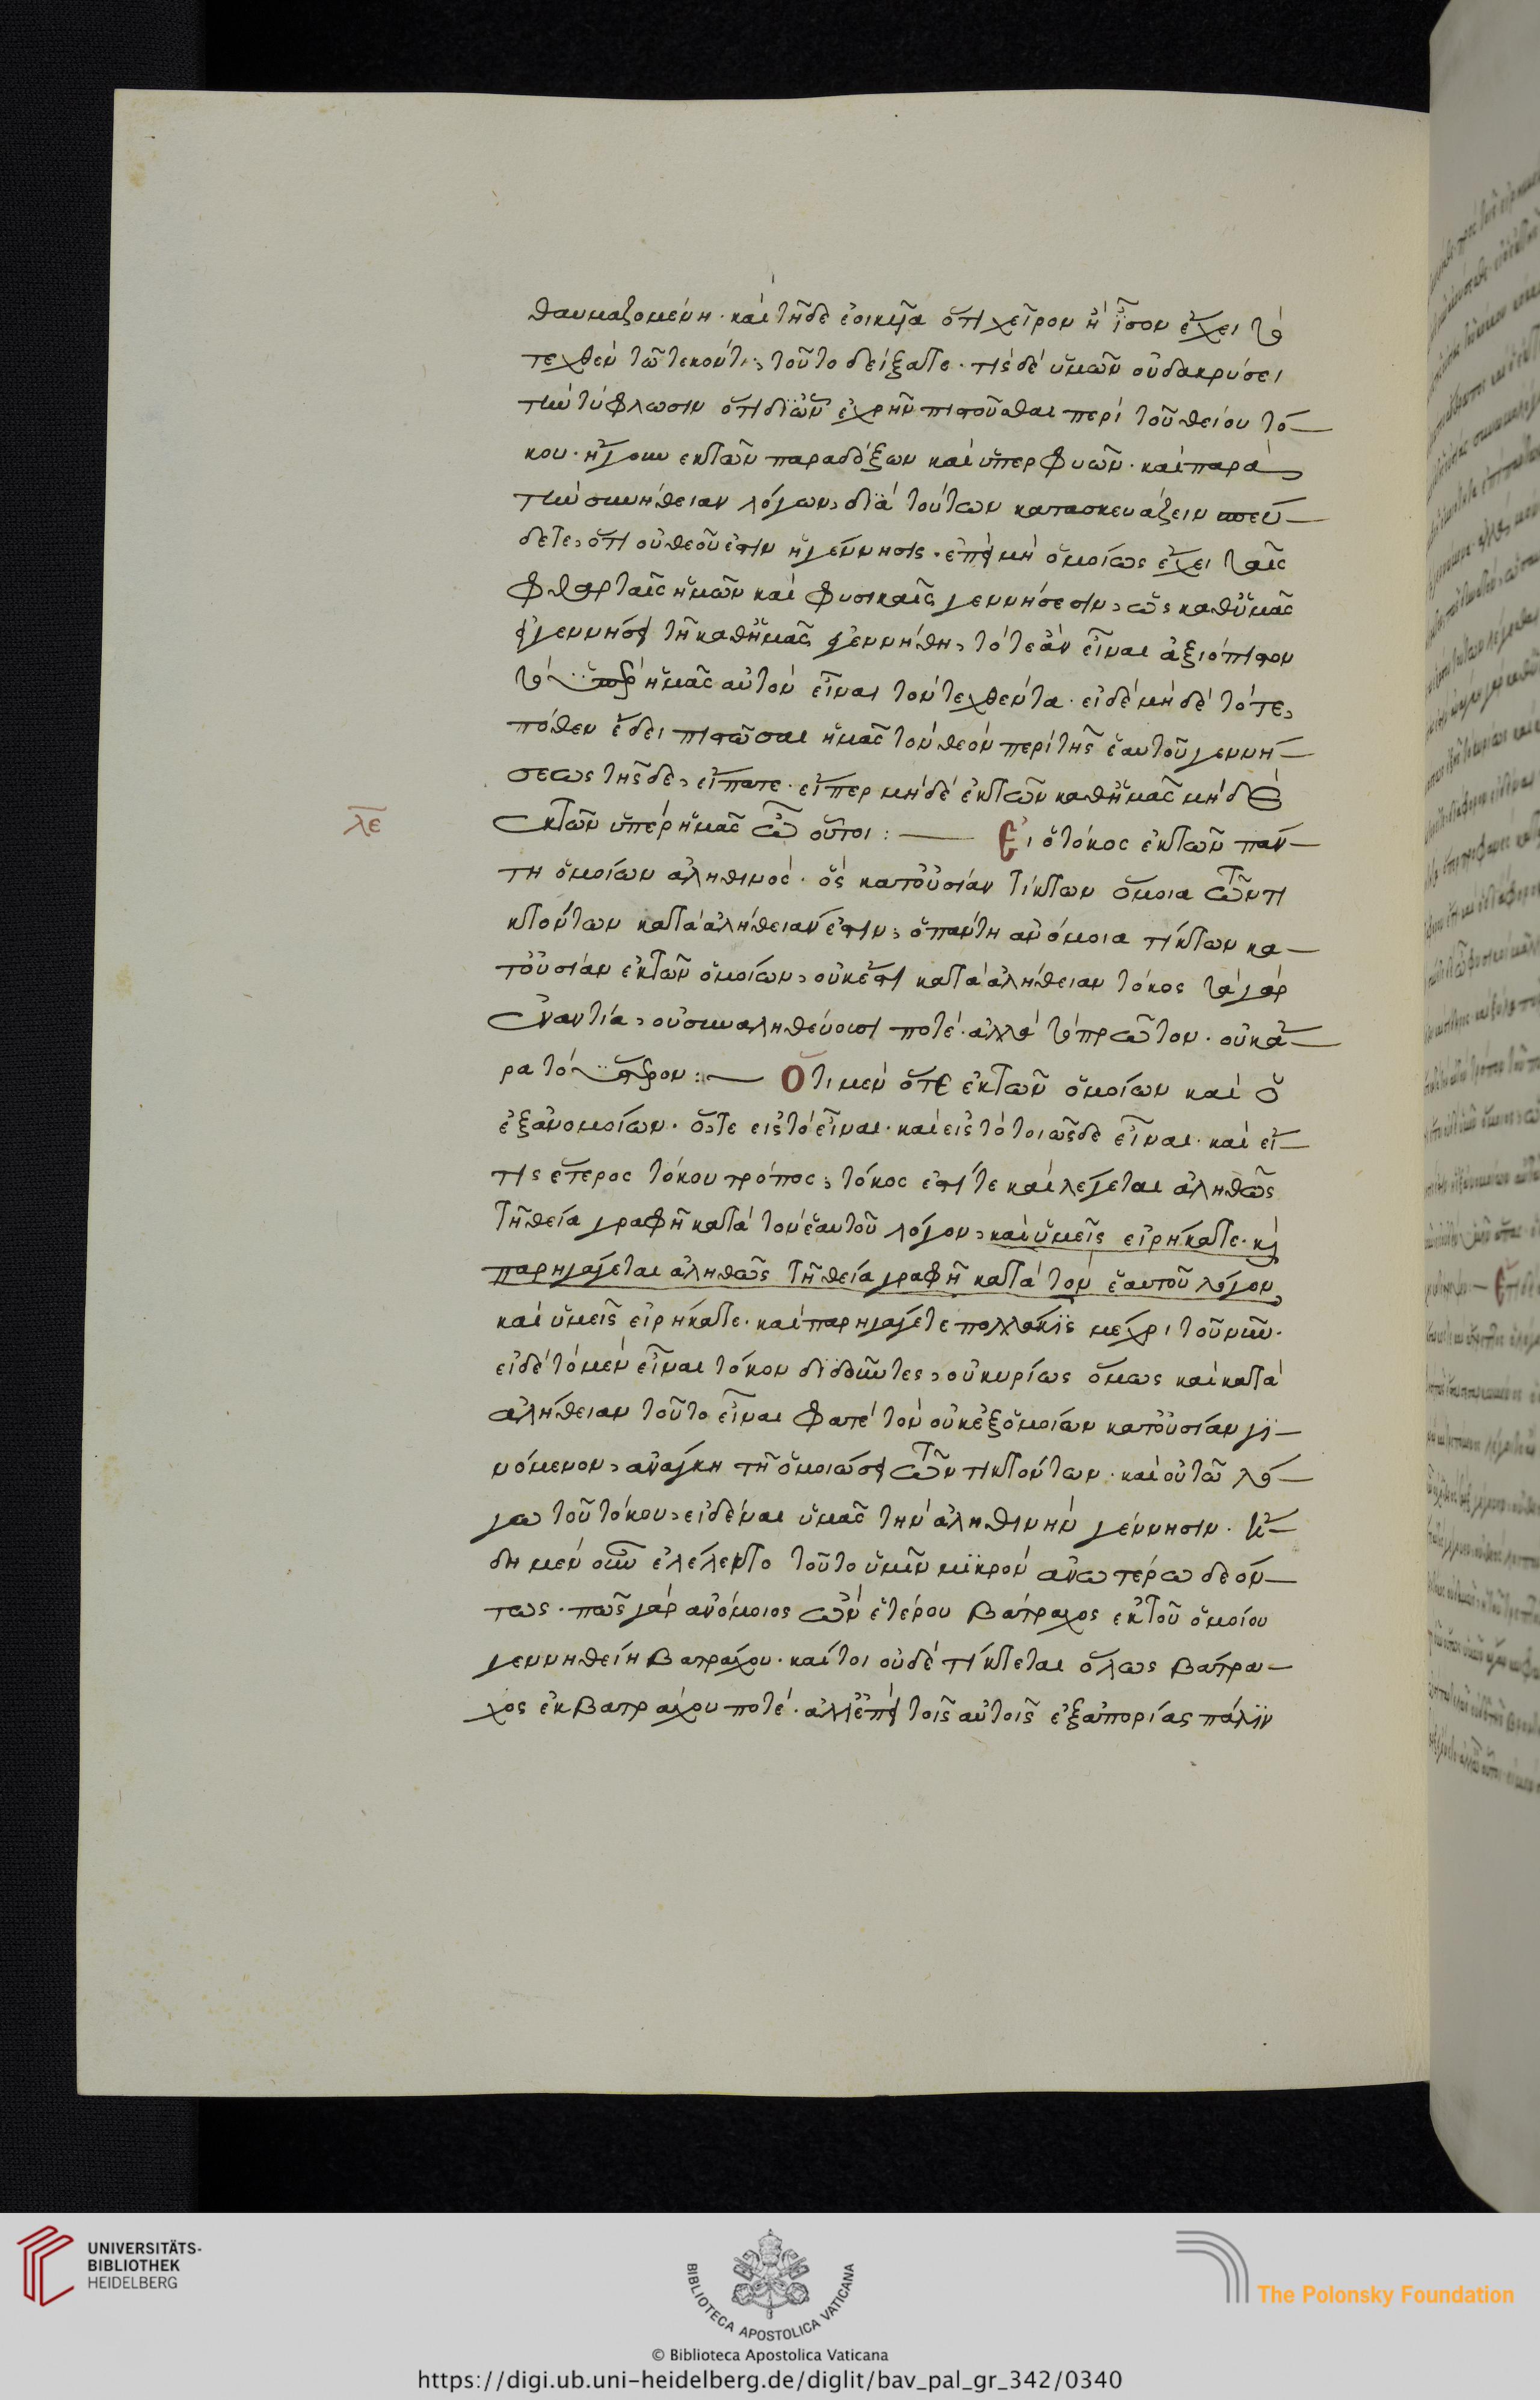 θαυμαζομένη· καὶ τῆδε ἐοικυῖα ὅτι χεῖρον ἢ ἴσον ἔχει τὸ
τεχθὲν τῶ τεκόντι, τοῦτο δείξατε· τίς δὲ ὑμῶν οὐ δακρύσει
τὴν τύφλωσιν ὅτι δι ὧν ἐχρῆν πιστοῦσθαι περὶ τοῦ θείου τό–
κου· ἤγουν ἐκ τῶν παραδόξων καὶ ὑπερφυῶν· καὶ παρὰ
τὴν συνήθειαν λόγων, διὰ τούτων κατασκευάζειν σπεύ–
δετε, ὅτι οὐ θεοῦ ἐστιν ἡ γέννησις· ἐπεὶ μὴ ὁμοίως ἔχει ταῖς
φθαρταῖς ἡμῶν καὶ φυσικαῖς γεννήσεσιν, ὡς καθ ὑμᾶς
εἰ γεννήσει τῆ καθ ἡμᾶς ἐγεννήθη, τότε ἂν εἶναι ἀξιόπιστον
τὸ ὑπὲρ ἡμᾶς αὐτὸν εἶναι τὸν τεχθέντα· εἰ δὲ μὴ δὲ τότε,
πόθεν ἔδει πιστῶσαι ἡμᾶς τὸν θεὸν περὶ τῆς ἑαυτοῦ γεννή–
σεως τῆσδε, εἴπατε· εἴπερ μὴ δὲ ἐκ τῶν καθ ἡμᾶς μὴ δὲ
ἐκ τῶν ὑπὲρ ἡμᾶς ὦ οὗτοι :—— Εἰ ὁ τόκος ἐκ τῶν πάν–
λε
τη ὁμοίων ἀληθινός· ὃς κατ οὐσίαν τίκτων ὅμοια τῶν τι
κτόντων κατὰ ἀλήθειαν ἐστιν, ὁ πάντη ἀνόμοια τίκτων κα–
τ οὐσίαν ἐκ τῶν ὁμοίων, οὐκ ἔστι κατὰ ἀλήθειαν τόκος τὰ γὰρ
ἐναντία, οὐ συναληθεύουσι ποτέ· ἀλλὰ τὸ πρῶτον· οὐκ ἄ–
ρα τὸ ὕστερον :— Ὅτι μὲν ὅτε ἐκ τῶν ὁμοίων καὶ ὁ
ἐξ ἀνομοίων· ὅ,τε εἰς τὸ εἶναι· καὶ εἰς τὸ τοιῶσδε εἶναι· καὶ εἴ–
τις ἕτερος τόκου τρόπος, τόκος ἐστί τε καὶ λέγεται ἀληθῶς
τῆ θεία γραφῆ κατὰ τὸν ἑαυτοῦ λόγον, καὶ ὑμεῖς εἰρήκατε· κὶ
παρηγάγεται ἀληθῶς τῆ θεία γραφῆ κατὰ τὸν ἑαυτοῦ λόγον,
καὶ ὑμεῖς εἰρήκατε· καὶ παρηγάγετε πολλάκις μέχρι τοῦ νῦν·
εἰ δὲ τὸ μὲν εἶναι τόκον διδόντες, οὐ κυρίως ὅμως καὶ κατὰ
ἀλήθειαν τοῦτο εἶναι φατὲ τὸν οὐκ ἐξ ὁμοίων κατ οὐσίαν γι–
νόμενον, ἀνάγκη τῆ ὁμοιώσει τῶν τικτόντων· καὶ οὐ τῶ λό–
γω τοῦ τόκου, εἰδέναι ὑμᾶς τὴν ἀληθινὴν γέννησιν· ἤ–
δη μὲν οὖν ἐλέλεκτο τοῦτο ὑμῖν μικρὸν ἀνωτέρω δεόν–
τως· πῶς γὰρ ἀνόμοιος ὢν ἑτέρου βάτραχος ἐκ τοῦ ὁμοίου
γεννηθείη βατράχου· καίτοι οὐδὲ τίκτεται ὅλως βάτρα–
χος ἐκ βατράχου ποτέ· ἀλλ ἐπεὶ τοῖς αὐτοῖς ἐξ ἀπορίας πάλιν
UNIVERSITÄTS-
BIBLIOTHEK
HEIDELBERG
BIBLIOTECA APOSTOLICA VATICANA
The Polonsky Foundation
© Biblioteca Apostolica Vaticana
https://digi.ub.uni-heidelberg.de/diglit/bav_pal_gr_342/0340